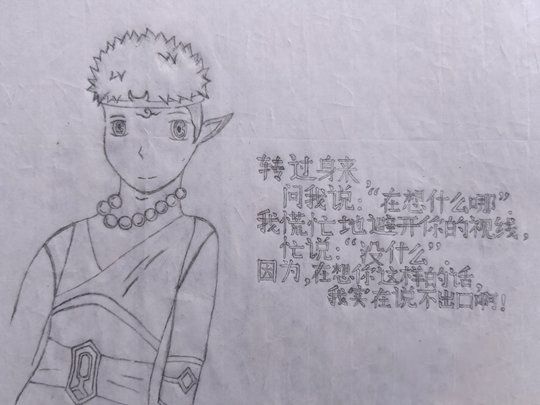 转过身来，
问我说：“在想什么哪”.
我慌忙地避开你的视线，
忙说：“没什么”.
因为，在想你这样的话，
我实在说不出口啊！